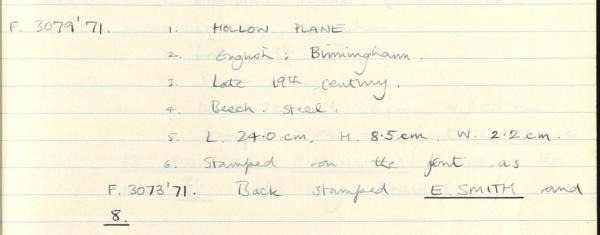 F. 3079'71. 1. HOLLOW PLANE
2. English; Birmingham.
3. Late 19th century.
4. Beech. Steel.
5. L. 24.0 cm. H. 8.5 cm. W. 2.2 cm.
6. Stamped on the front as
F. 3073'71. Back stamped E. SMITH and
8.